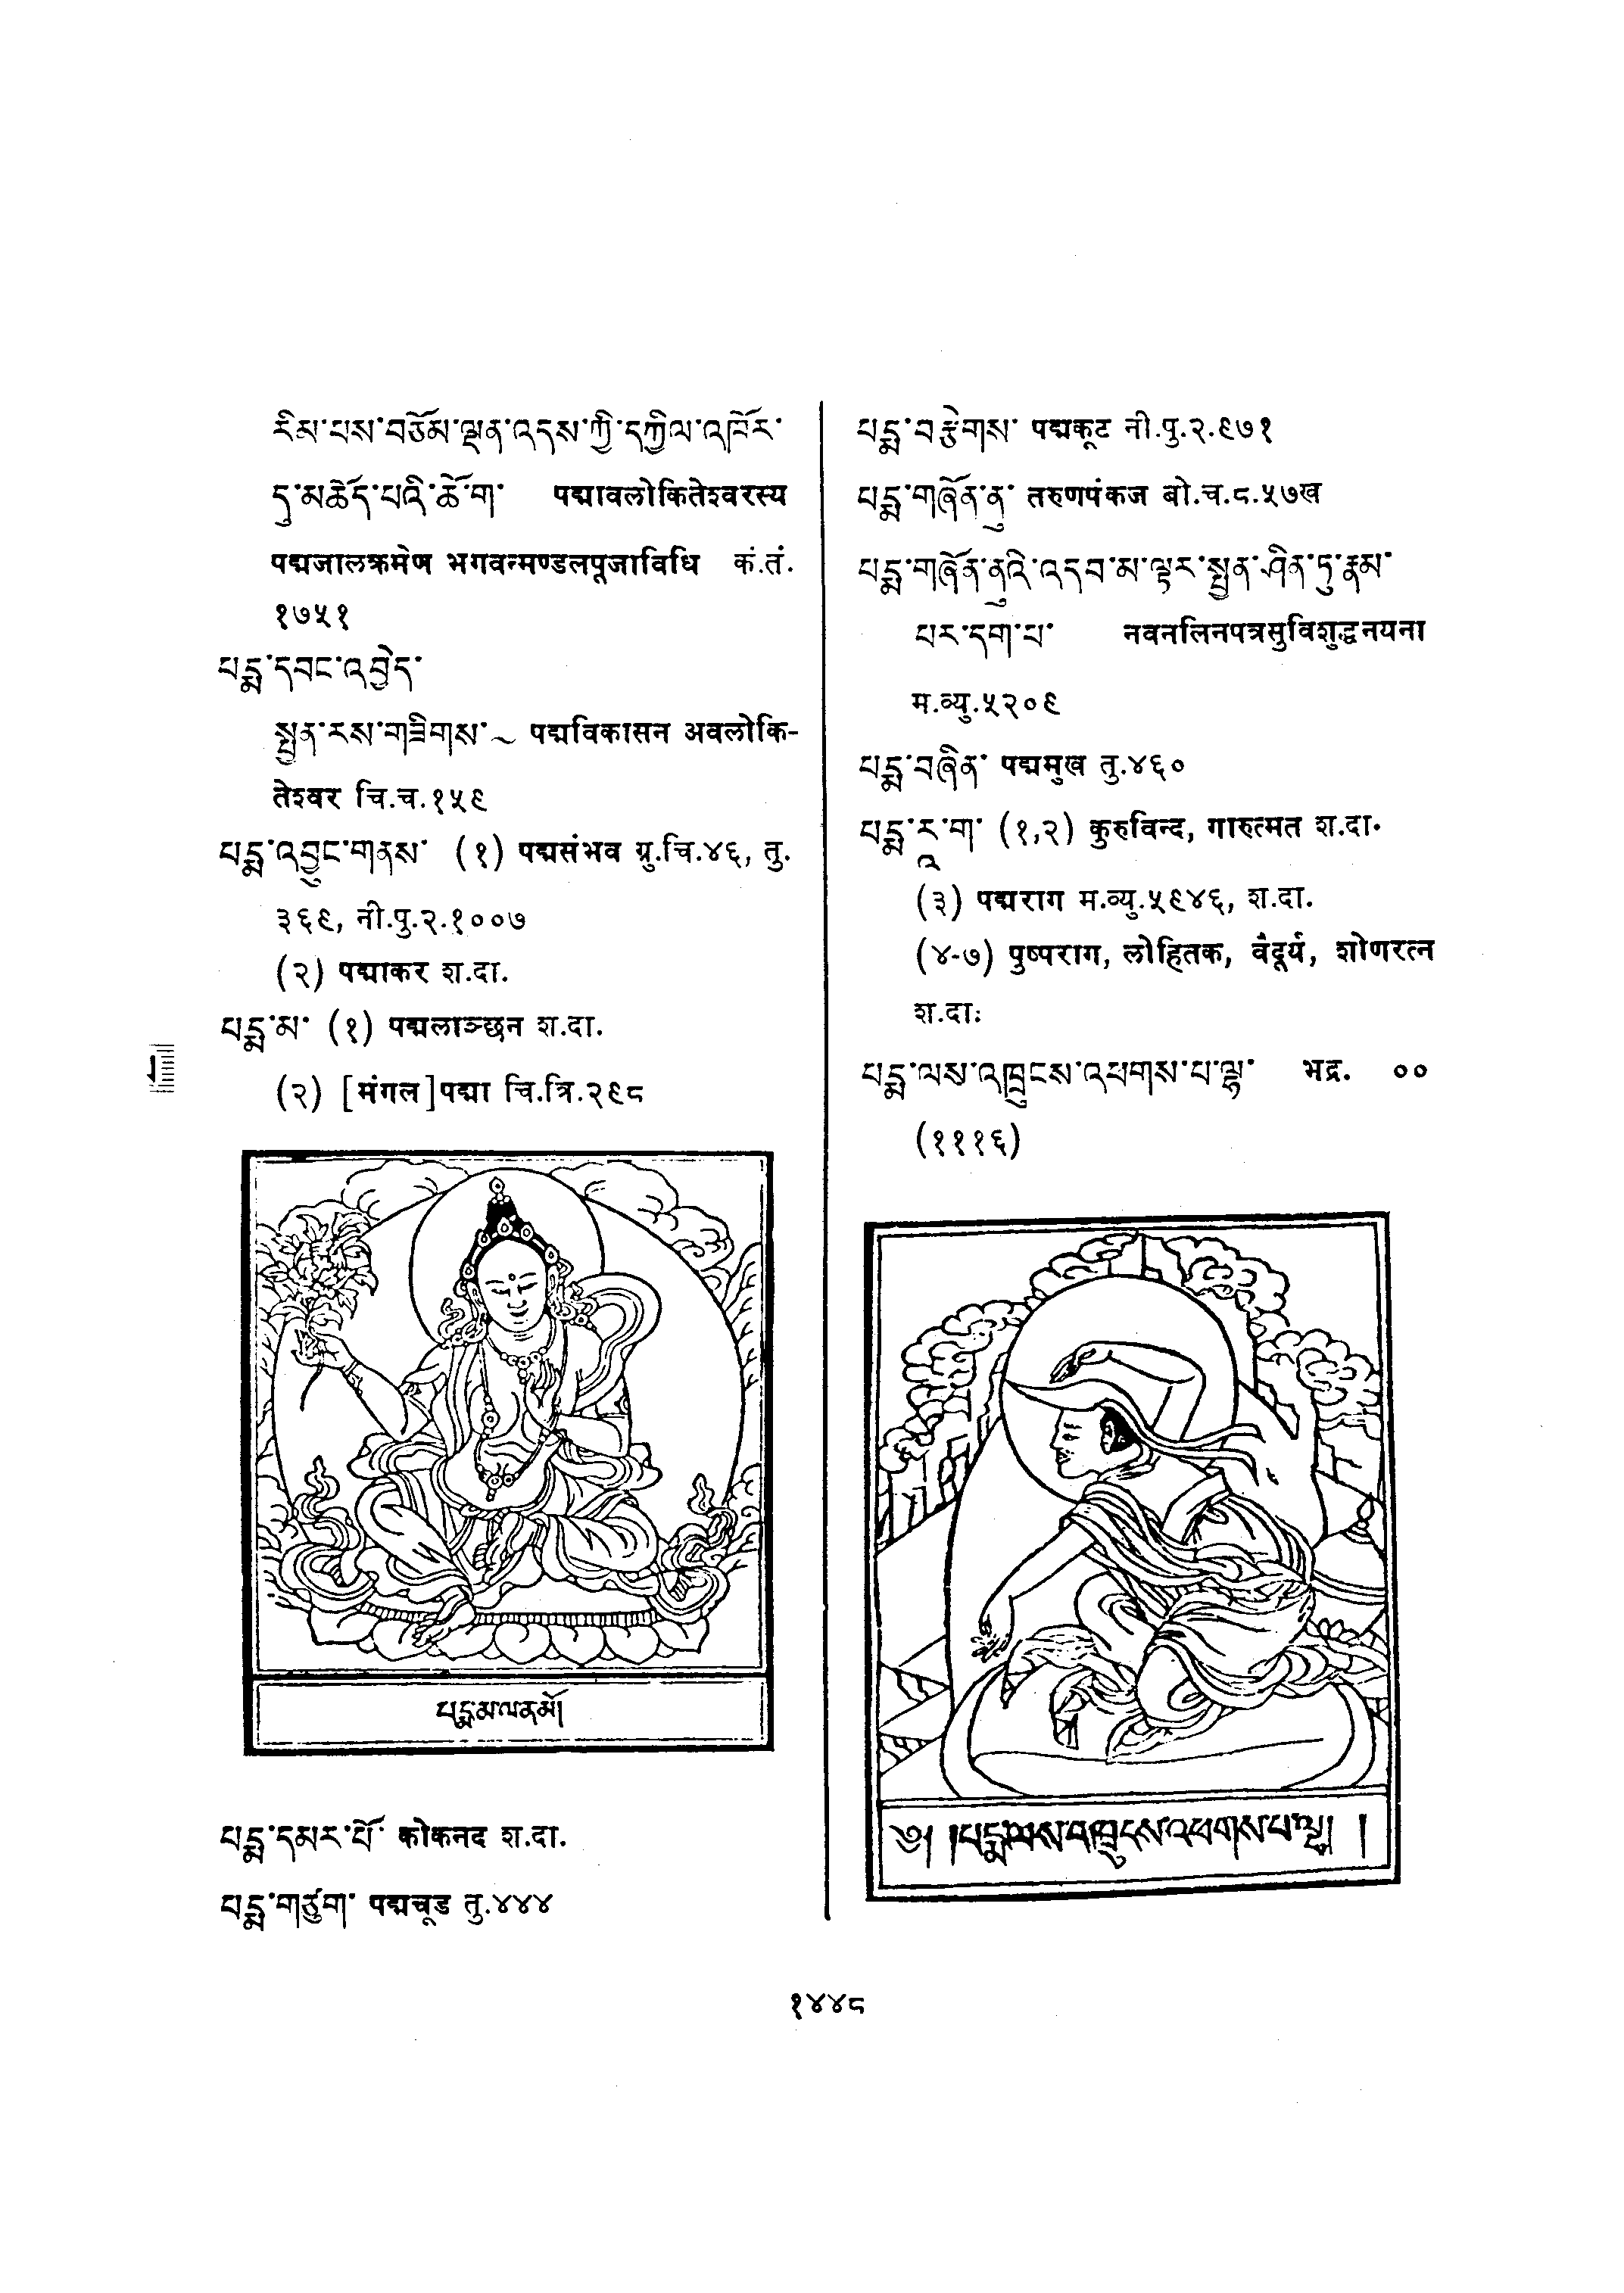 རིམ་པས་བཅོམ་ལྡན་འདས་ཀྱི་དཀྱིལ་འཁོར་
དུ་མཆོད་པའི་ཆོ་ག་ पद्मावलोकितेश्वरस्य
पद्मजालक्रमेण भगवन्मण्डलपूजाविधि कं.तं.
१७५१
པདྨ་དབང་འབྱེད་
སྤྱན་རས་གཟིགས་~ पद्मविकासन अवलोकि-
तेश्वर चि.च.१५९
པདྨ་འབྱུང་གནས་ (१) पद्मसंभव ग्रु.चि.४६, तु.
३६९, नी.पु.२.१००७
(२) पद्माकर श.दा.
པདྨ་མ་ (१) पद्मलाञ्छन श.दा.
(२) [मंगल]पद्मा चि.त्रि.२९८
པདྨམལནམོ།
པདྨ་དམར་པོ་ कोकनद श.दा.
པདྨ་གཙུག་ पद्मचूड तु.४४४
པདྨ་བརྩེགས་ पद्मकूट नी.पु.२.९७१
པདྨ་གཞོན་ནུ་ तरुणपंकज बो.च.८.५७ख
པདྨ་གཞོན་ནུའི་འདབ་མ་ལྟར་སྤྱན་ཤིན་ཏུ་རྣམ་
པར་དག་པ་ नवनलिनपत्रसुविशुद्धनयना
म.व्यु.५२०९
པདྨ་བཞིན་ पद्ममुख तु.४६०
པདྨ་རཱ་ག་ (१,२) कुरुविन्द, गारुत्मत श.दा.
(३) पद्मराग म.व्यु.५९४६, श.दा.
(४-७) पुष्पराग, लोहितक, वैदूर्य, शोणरत्न
श.दाः
པདྨ་ལས་འཁྲུངས་འཕགས་པ་ལྷ་ भद्र. ००
(१११६)
༄། །པདྨ་ལས་འཁྲུངས་འཕགས་པ་ལྷ། །
१४४८